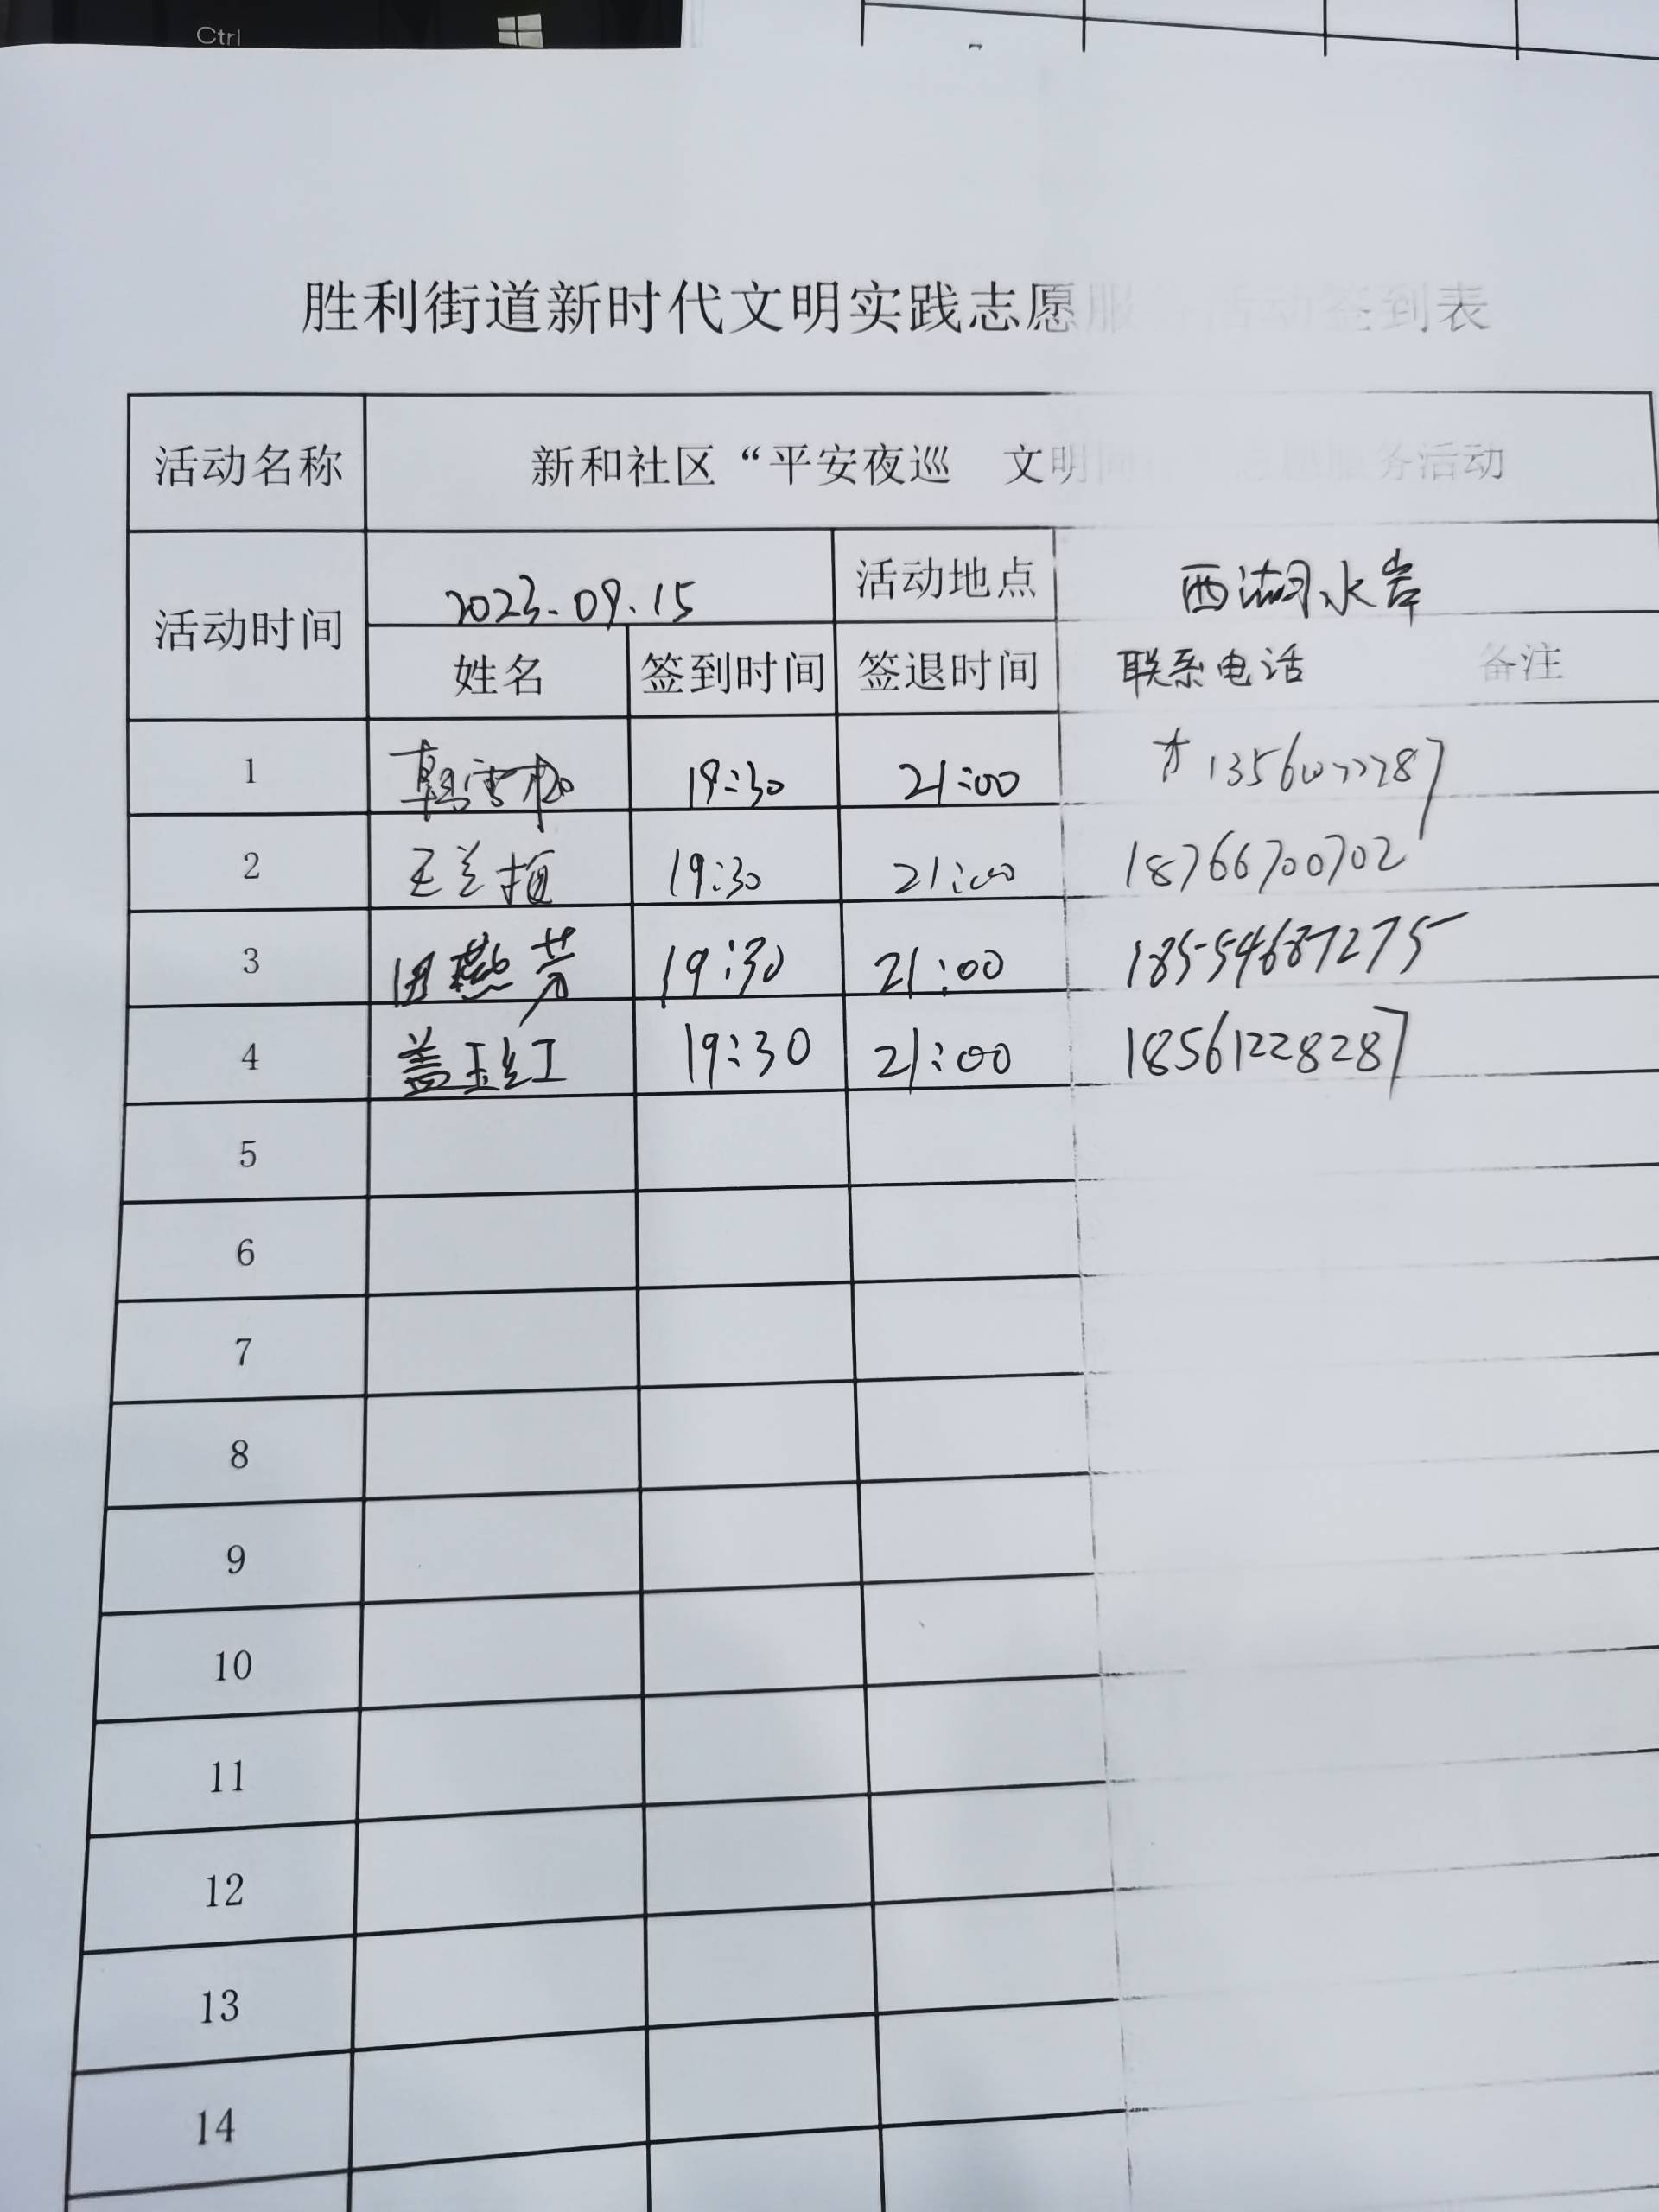 Ctrl
胜利街道新时代文明实践志愿服务活动签到表
活动名称 新和社区“平安夜巡 文明 服务活动
活动时间 2023.09.15 活动地点 西湖水岸
姓名 签到时间 签退时间 联系电话 备注
1 19:30 21:00
2 王兰梅 19:30 21:00 18766700702
3 燕芳 19:30 21:00 18554687275
4 盖玉红 19:30 21:00 18561228287
5
6
7
8
9
10
11
12
13
14